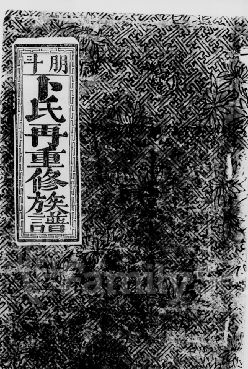 朋斗
卜氏再重修族譜
Family